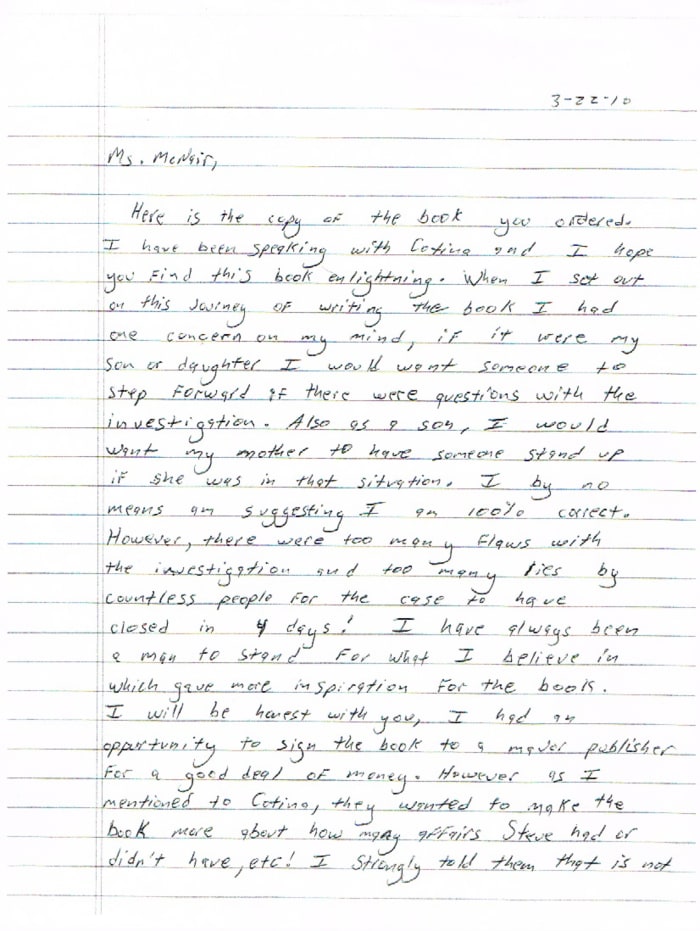 3-22-10
Ms. McNair,
Here is the copy of the book you ordered.
I have been speaking with Cotina and I hope
you find this book enlightning. When I set out
on this Journey of writing the book I had
one concern on my mind, if it were my
son or daughter I would want someone to
step forward if there were questions with the
investigation. Also as a son, I would
want my mother to have someone stand up
if she was in that situation. I by no
means am suggesting I am 100% correct.
However, there were too many flaws with
the investigation and too many lies by
countless people for the case to have
closed in 4 days! I have always been
a man to stand for what I believe in
which gave more inspiration for the book.
I will be honest with you, I had an
opportunity to sign the book to a major publisher
for a good deal of money. However as I
mentioned to Cotina, they wanted to make the
book more about how many affairs Steve had or
didn't have, etc! I Strongly told them that is not